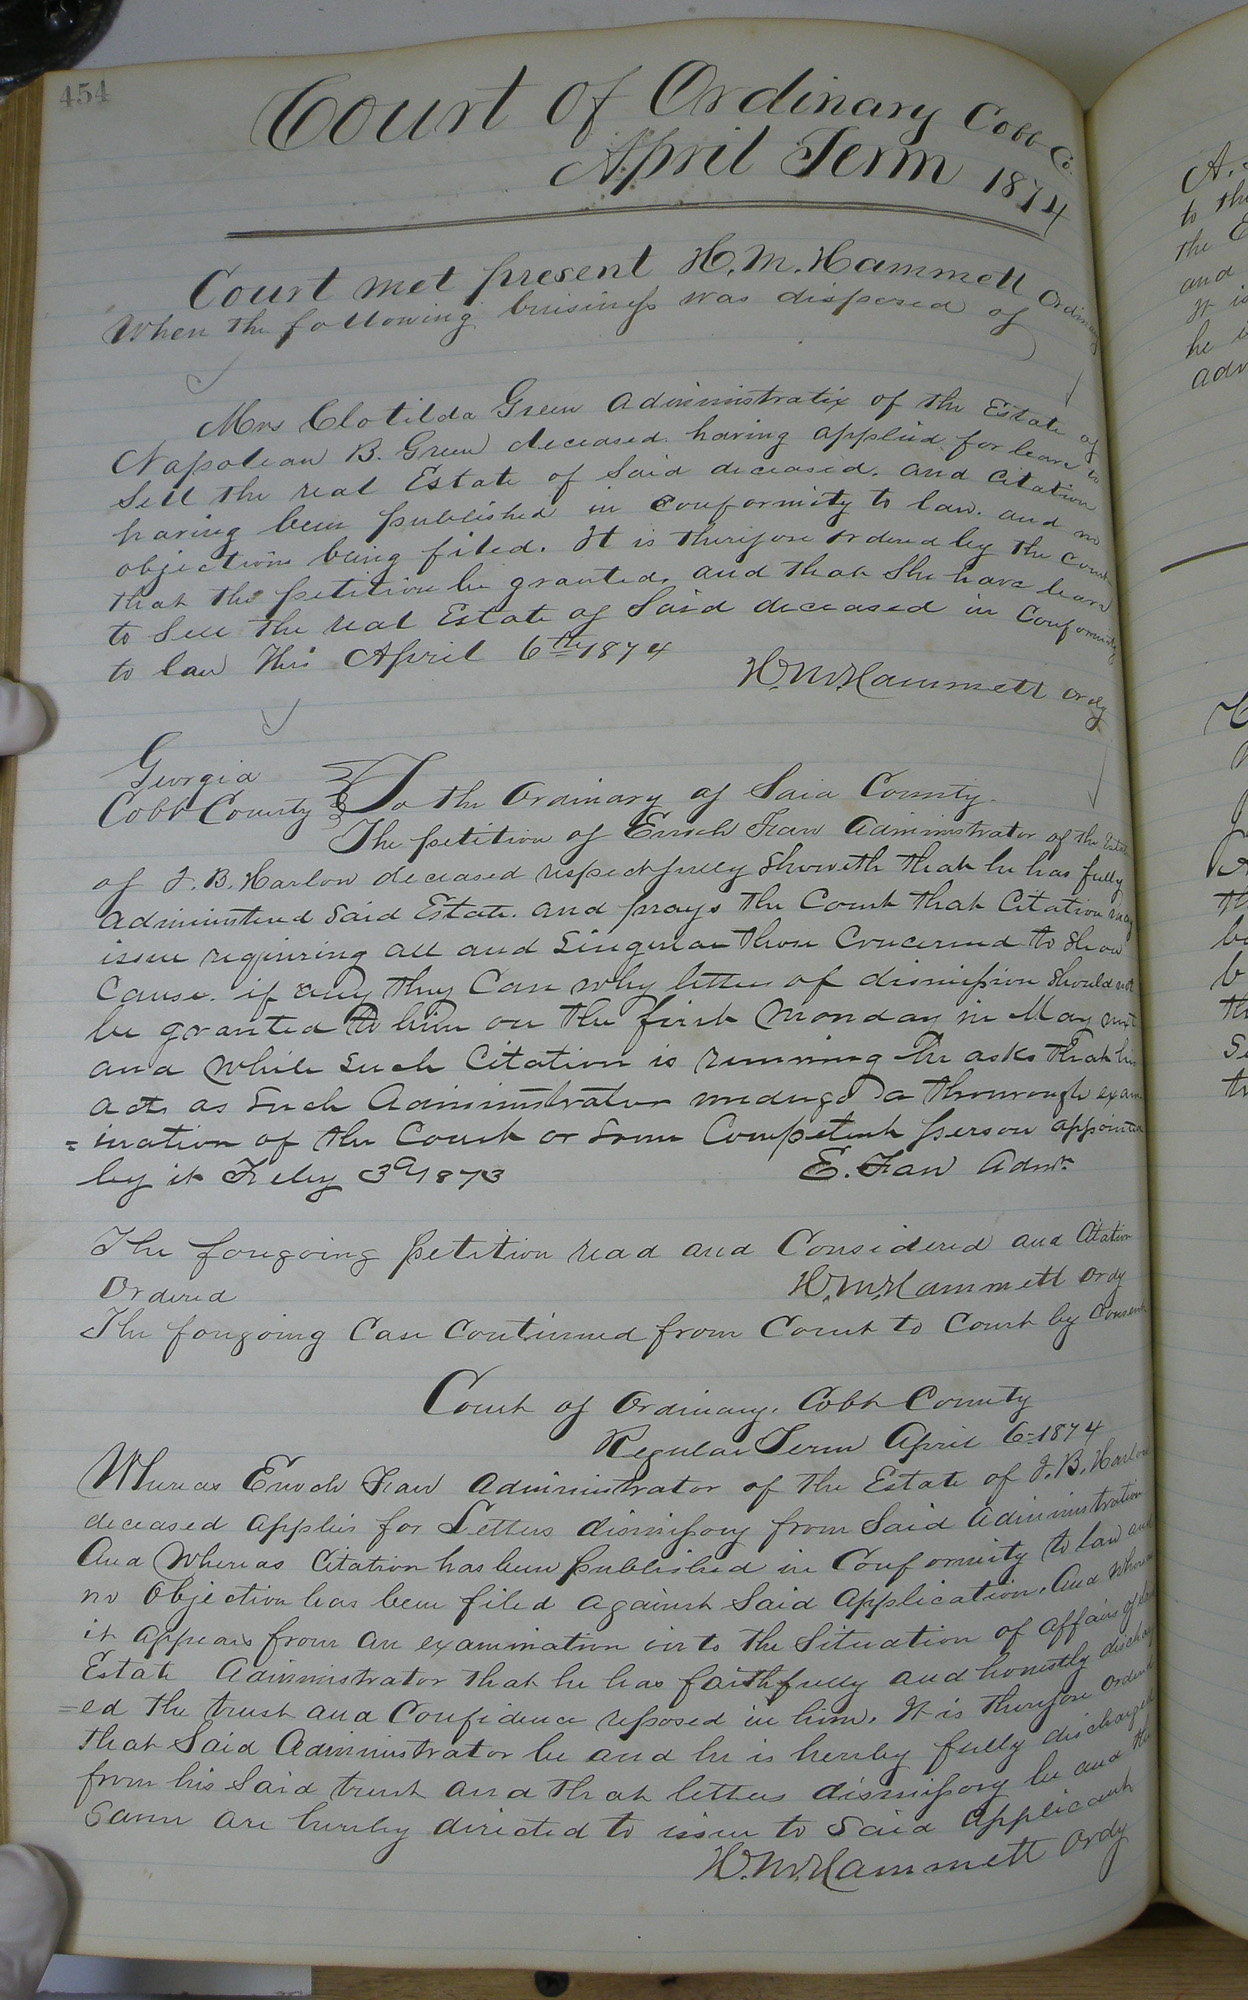 454
Court of Ordinary Cobb Co.
April Term 1874
Court met present H. M. Hammett Ordinary
When the following buisiness was disposed of
Mrs Clotilda Green Administratix of the Estate of
Napolean B. Green deceased having applied for leave to
Sell the real Estate of Said deceased. and Citation
having been published in Conformity to law. and no
objections being filed. It is therefore ordered by the Court
that the petition be granted, and that She have leave
to Sell the real Estate of Said deceased in Conformity
to law This April 6th 1874
H. M. Hammett Ordy
Georgia
Cobb County
To the Ordinary of Said County
The petition of Enoch Faw Administrator of the Estate
of J. B. Harlow deceased respectfully Showeth that he has fully
administered Said Estate. and prays the Court that Citation may
issue requiring all and Singular those Concerned to Show
Cause. if any they Can why letters of dismission Should not
be granted to him on the first Monday in May next
and while Such Citation is running he asks that his
acts as Such Administrator undergo a thourough exam
=ination of the Court or Some Competent person appointed
by it Feby 3d 1873
E. Faw Admr
The foregoing petition read and Considered and Citation
Ordered
H. M. Hammett Ordy
The forgoing Case Continued from Court to Court by Consent
Court of Ordinary. Cobb County
Regular Term April 6= 1874
Whereas Enoch Faw Administrator of the Estate of J. B. Harlow
deceased applies for Letters dismissory from Said Administration
And Whereas Citation has been published in Conformity to law and
no Objection has been filed against Said Application. And Whereas
it appears from an examination into the Situation of affairs of
Estate Administrator that he has faithfully and honestly discharg
=ed the trust and Confidence reposed in him. It is therefore Ordered
that Said Administrator be and he is hereby fully discharged
from his Said trust and that letters dismissory be and the
Same are hereby directed to issue to Said Applicant
H. M. Hammett Ordy